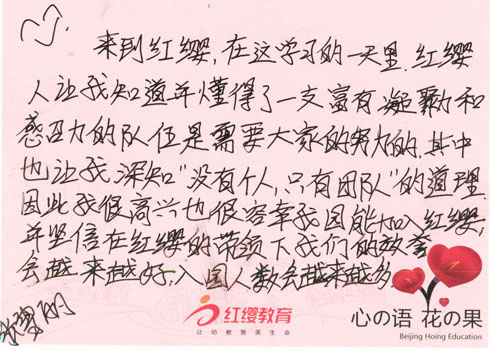 来到红缨,在这学习的一天里.红缨
人让我知道并懂得了一支富有凝聚力和
感召力的队伍是需要大家的努力的.其中
也让我深知"没有个人,只有团队"的道理
因此我很高兴也很容幸我园能加入红缨,
并坚信在红缨的带领下我们的教舍
会越来越好,入园人数会越来越多.
红缨教育
让幼教焕美生命
心の语 花の果
Beijing Hoing Education